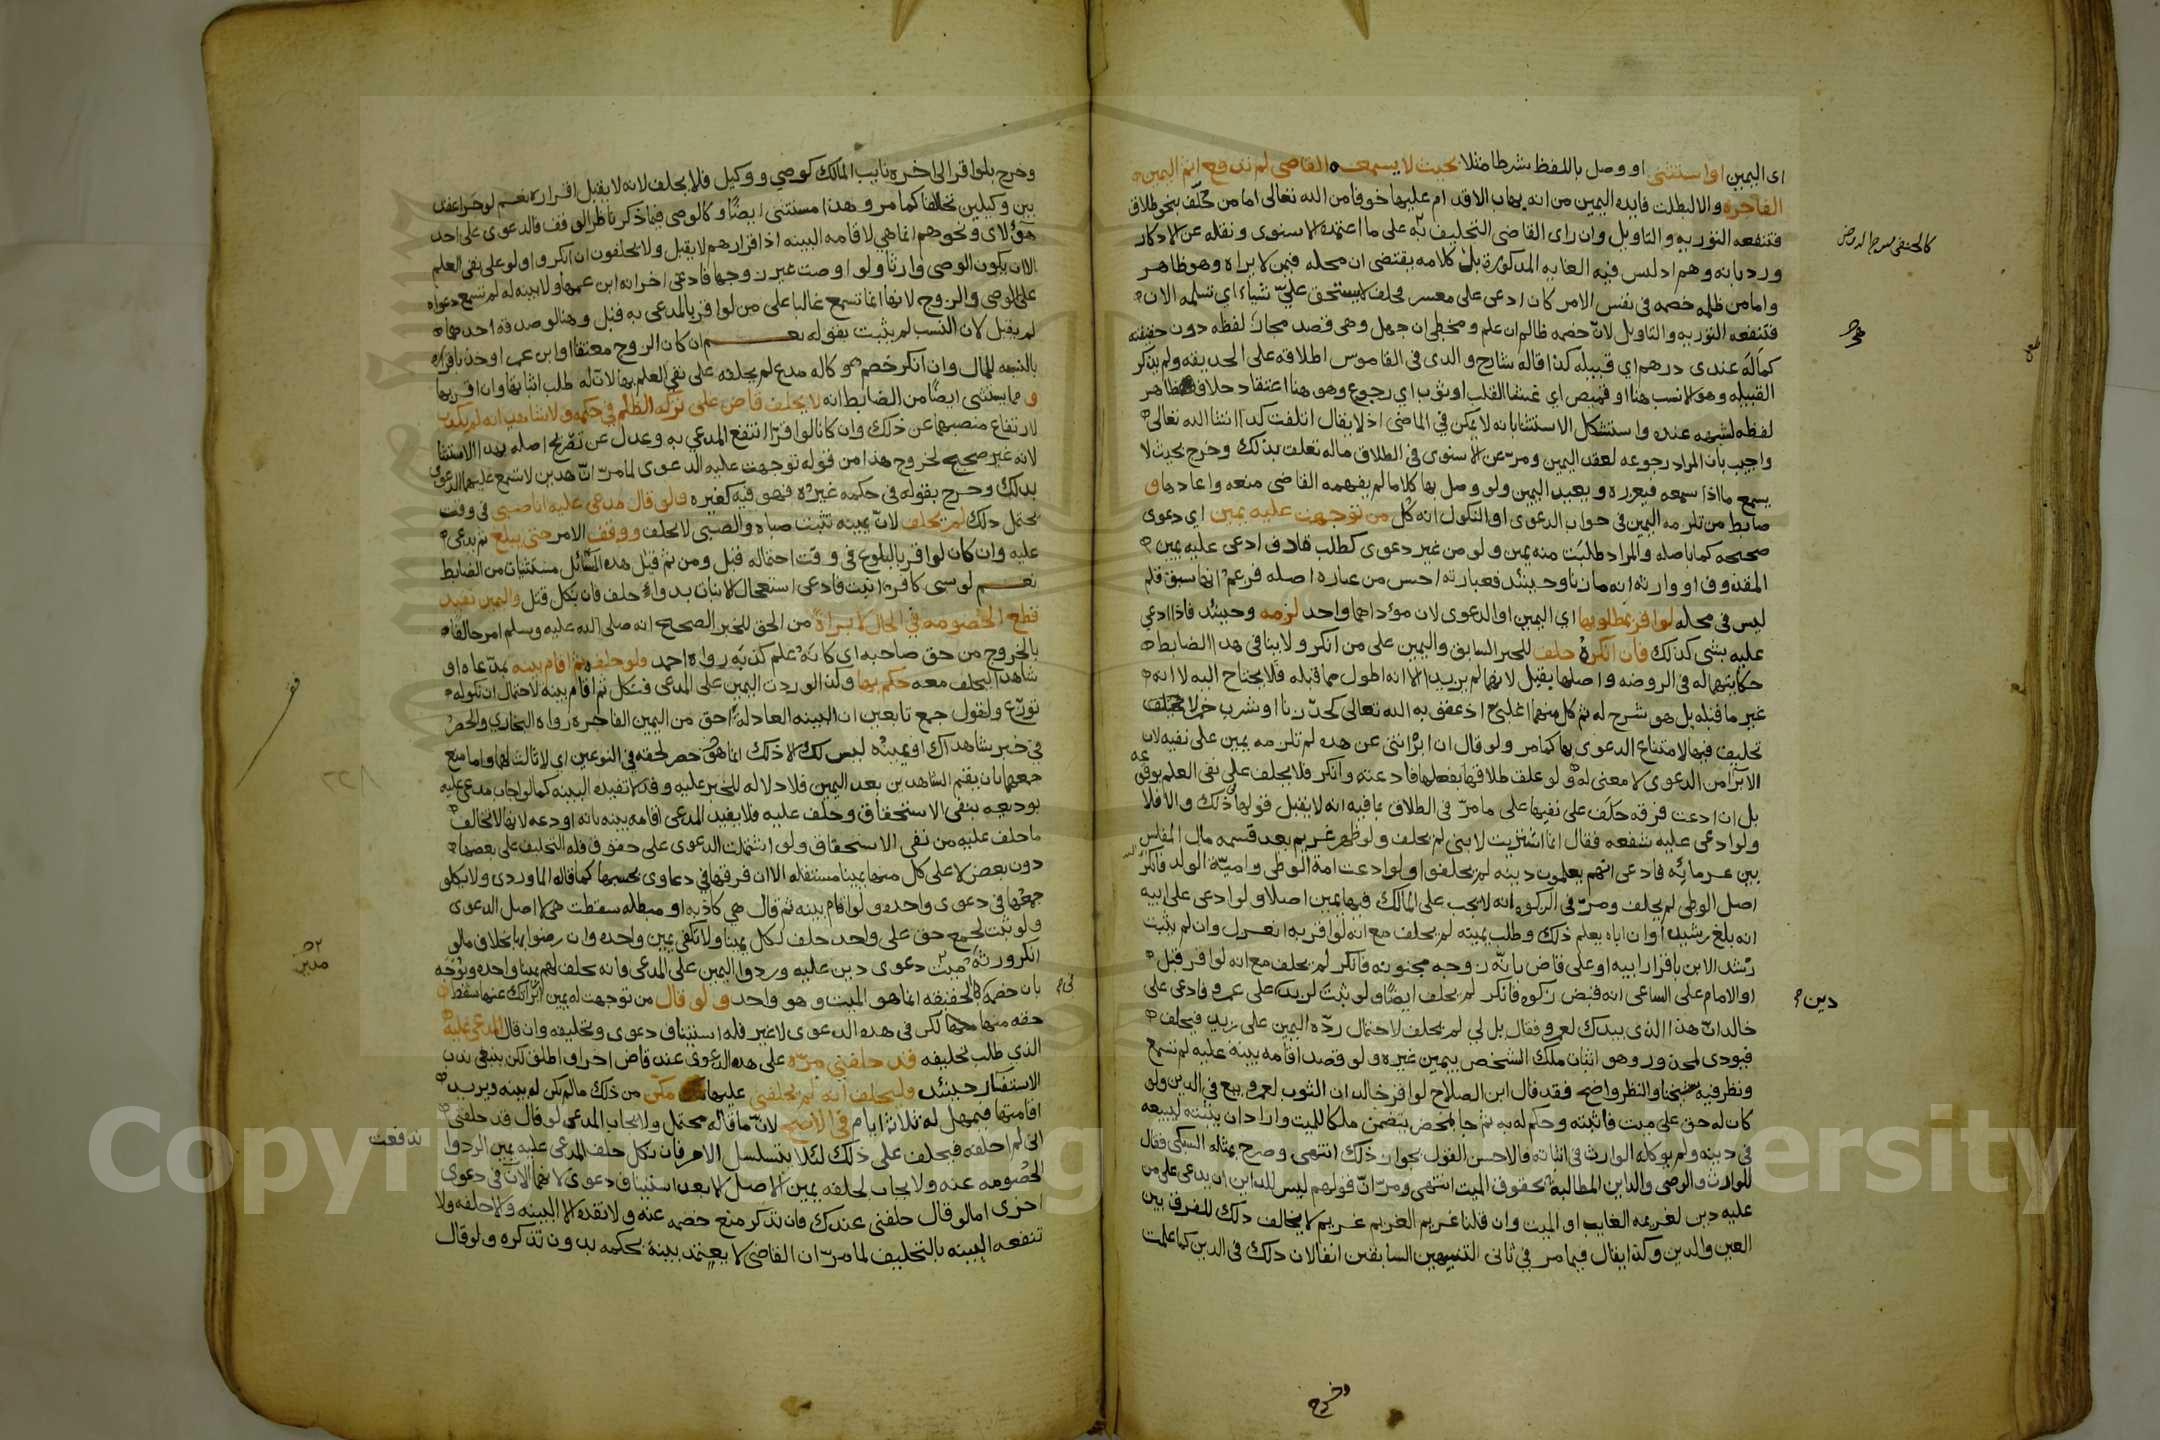 اى اليمين او استثنى او وصل باللفظ شرطا مثلا بحيث لا يسمعه القاضى لم تدفع اثم اليمين
الفاجرة والا لبطلت فايدة اليمين من انه يهاب الاقدام عليها خوفا من الله تعالى اما من حلّف بنحو طلاق
فتنفعه التوريه والتاويل وان راى القاضى التحليف به على ما اعتمده الاسنوى ونقله عن الاذكار
ورد بانه وهم اذ ليس فيه الغايه المذكورة بل كلامه يقتضى ان محله فيمن لا يراه وهو ظاهر
واما من ظلمه خصمه فى نفس الامر كان ادعى على معسر فحلف لا يستحق علىّ شياء اي تسلمه الان
فتنفعه التوريه والتاويل لان خصمه ظالم ان علم ومخطي ان جهل وهى قصد مجاز لفظه دون حقيقته
كماله عندى درهم اي قبيله كذا قاله شارح والذى فى القاموس اطلاقه على الحديقه ولم يذكر
القبيله وهو الانسب هنا او قميص اي غشا القلب او ثوب اي رجوع وهو هنا اعتقاد خلاف ظاهر
لفظه لشبهه عنده واستشكل الاستثنا بانه لا يمكن في الماضى اذ لا يقال اتلفت كذا ان شا الله تعالى
واجيب بان المراد رجوعه لعقد اليمين ومرّ عن الاسنوى فى الطلاق ماله تعلق بذلك وخرج بحيث لا
يسمع ما اذا سمعه فيعزره ويعيد اليمين ولو وصل بها كلاما لم يفهمه القاضى منعه واعادها و
ضابط من تلزمه اليمين فى جواب الدعوى او النكول انه كل من توجهت عليه يمين اي دعوى
صحيحه كما باصله والمراد طلبت منه يمين ولو من غير دعوى كطلب قاذف ادعى عليه يمين
المقذوف او وارثه انه ما زنا وحينئذ فعبارته احسن من عبارة اصله فزعم انها سبق قلم
ليس فى محله لو اقر بمطلوبها اي اليمين او الدعوى لان مؤداهما واحد لزمه وحينئذ فاذا ادعي
عليه بشى كذلك فان انكره حلف للخبر السابق واليمين على من انكر ولا ينافى هذا الضابط
حكايتهما له فى الروضه واصلها بقيل لانهما لم يريدا الا انه اطول مما قبله فلا يحتاج اليه لا انه
غير ما قبله بل هو شرح له ثم كل منهما اغلبىّ اذ عقوبه الله تعالى كحدّ زنا او شرب خمر لا تحليف
تحليف فيها لامتناع الدعوى بها كما مر ولو قال ان ابرأتنى عن هذه لم تلزمه يمين على نفيه لان
الابرا من الدعوى لا معنى له ولو علق طلاقها بفعلها فادعته وانكر فلا يحلف على نفى العلم بوقوعه
بل ان ادعت فرقه حلف على نفيها على ما مرّ فى الطلاق بما فيه انه لا يقبل قولها ذلك والا فلا
ولو ادعى عليه شفعه فقال انما اشتريت لابنى لم يحلف ولو ظهر غريم بعد قسمه مال المفلس
بين غرمائه فادعى انهم يعلمون دينه لم يحلفوا ولو ادعت امة الوطى واميّة الولد فانكر
اصل الوطى لم يحلف ومرّ فى الزكوة انه لا يجب على المالك فيها يمين اصلا ولو ادعى على ابيه
انه بلغ رشيدا وان اباه يعلم ذلك وطلب يمينه لم يحلف مع انه لو اقر به انعزل وان لم يثبت
رشد الابن باقرار ابيه او على قاض بانّه زوجه مجنونه فانكر لم يحلف مع انه لو اقر قبل
او الامام على الساعى انه قبض زكوه فانكر لم يحلف ايضا ولو ثبت لزيد على عمرو فادعى على
خالد ان هذا الذى بيدك لعمرو فقال بل لي لم يحلف لاحتمال ردّه اليمين على زيد فيحلف
فيودى لمحذور وهو اثبات ملك الشخص بيمين غيره ولو قصد اقامه بينة عليه لم تسمع
ونظر فيه شيخنا والنظر واضح فقد قال ابن الصلاح لو اقر خالد ان الثوب لعمرو بيع فى الدين ولو
كان له حق على ميت فاثبته وحكم له به ثم جا بمحضر يتضمن ملكا للميت واراد ان يثبته ليبيعه
فى دينه ولم يوكله الوارث فى اثباته فالاحسن القول بجواز ذلك انتهى وصرح بمثله السبكى فقال
للوارث والوصى والداين المطالبة بحقوق الميت انتهى ومرّ انّ قولهم ليس للداين ان يدعى على من
عليه دين لغريمه الغايب او الميت وان قلنا غريم الغريم غريم لا يخالف ذلك للفرق بين
العين والدين وكذا يقال فيما مر في ثانى التنبيهين السابقين انفا لان ذلك فى الدين كما علمت
دين
وخرج
وخرج بلو اقر الى اخره نايب المالك كوصي ووكيل فلا يحلف لانه لا يقبل اقراره نعم لو جرا عقد
بين وكيلين تحالفا كما مر وهذا مستثنى ايضًا وكالوصى فيما ذكر ناظر الوقف فالدعوى على احد
هؤلاى ونحوهم انما هي لاقامه البينه اذ اقرارهم لا يقبل ولا يحلفون ان انكروا ولو على نفى العلم
الا ان يكون الوصى وارثا ولو اوصت غير زوجها فادعى اخر انه ابن عمها ولا بينه له لم تسمع دعواه
على الوصى والزوج لانها انما تسمع غالبا على من لو اقر بالمدعى به قبل وهنا لو صدقه احدهما
لم يقبل لان النسب لم يثبت بقوله نعم ان كان الزوج معتقا او ابن عم اوخذ باقراره
بالنسبه للمال وان انكر خصم وكاله مدع لم يحلفه على نفى العلم بها لان له طلب اثباتها وان اقر بها
و مما يستثنى ايضًا من الضابط انه لا يحلف قاض على تركه الظلم في حكمه ولا شاهد انه لم يكذب
لارتفاع منصبهما عن ذلك وان كانا لو اقرّا انتفع المدعي به وعدل عن تفريع اصله بهذا الاستثنا
لانه غير صحيح لخروج هذا من قوله توجهت عليه الدعوى لما مرّ انّ هذين لا تسمع عليهما الدعوى
بذلك وخرج بقوله فى حكمه غيره فهو فيه كغيره ولو قال مدعى عليه انا صبى فى وقت
يحتمل ذلك لم يحلف لانّ يمينه تثبت صباه والصبى لا يحلف ووقف الامر حتى يبلغ ثم يدعى
عليه وان كان لو اقر بالبلوغ فى وقت احتماله قبل ومن ثم قيل هذه المسائل مستثنيات من الضابط
نعم لو سبى كافر انبت فادعى استعجال الانبات بدواء حلف فان نكل قتل واليمين تفيد
قطع الخصومه في الحال لا براة من الحق للخبر الصحيح انه صلى الله عليه وسلم امر حالفا
بالخروج من حق صاحبه اي كانه علم كذبه رواه احمد ولو حلفه ثم اقام بينه بمدعاه او
شاهدا ليحلف معه حكم بها وكذا لو ردت اليمين على المدعى فنكل ثم اقام بينه لاحتمال ان نكوله
تورّع ولقول جمع تابعين ان البينه العادلة احق من اليمين الفاجره رواه البخارى والحصر
في خبر شاهداك او يمينه ليس لك الا ذلك انما هو حصر لحقه في النوعين اي لا ثالث لهما واما منع
جمعهما بان يقيم الشاهدين بعد اليمين فلا دلاله للخبر عليه وقد لا تفيده البينه كما لو اجاب مدعى عليه
بوديعه بنفى الاستحقاق وحلف عليه فلا يفيد المدعى اقامه بينه بانه اودعه لانها لا تخالف
ما حلف عليه من نفى الاستحقاق ولو اشتملت الدعوى على حقوق فله التحليف على بعضها
دون بعض لا على كل منها يمينا مستقله الا ان فرقها في دعاوى بحسبها كما قاله الماوردى
جمعها فى دعوى واحده ولو اقام بينه ثم قال هي كاذبه او مبطله سقطت هى لا اصل الدعوى
ولو ثبت لجمع حق على واحد حلف لكل يمينا ولا تكفى يمين واحده وان رضوا بها بخلاف ما لو
انكر ورثة ميت دعوى دين عليه وردوا اليمين على المدعى فانه يحلف لهم يمينا واحده ويوجه
بان خصمه فى الحقيقه انما هو الميت وهو واحد ولو قال من توجهت له يمين ابراتك عنها سقط
حقه منها لكن فى هذه الدعوى لا غير فله استيناف دعوى وتحليفه وان قال المدعى عليه
الذى طلب تحليفه قد حلفنى مره على هذه الدعوى عند قاض اخر او اطلق لكن ينبغى ندب
الاستفسار حينئذ فليحلف انه لم يحلفني عليها مكن من ذلك ما لم تكن له بينه ويريد
اقامتها فيمهل له ثلاثة ايام في الاصح لانّ ما قاله محتمل ولا يجاب المدعى لو قال قد حلفنى
انى لم احلفه فيحلف على ذلك لئلا يتسلسل الامر فان نكل حلف المدعى عليه يمين الرد
الخصومه عنه ولا يجاب لحلفه يمين الاصل الا بعد استيناف دعوى لانهما الآن فى دعوى
اخرى اما لو قال حلفنى عندك فان تذكر منع خصمه عنه ولا نفذه الا البينه والا حلفه ولا
تنفعه البينه بالتحليف لما مرّ ان القاضى لا يعتمد بينة بحكمه بدون تذكره ولو قال
فى
تدفعت
٢٢٨